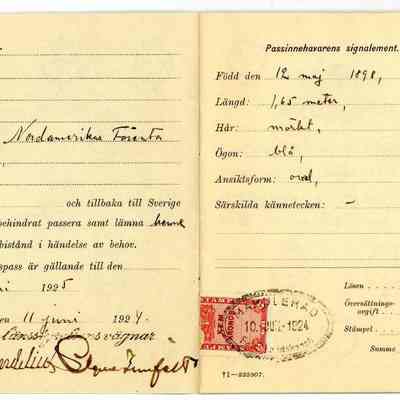 Nordamerikas Förenta
och tillbaka till Sverige
behindrat passera samt lämna henne
bistånd i händelse av behov.
spass är gällande till den
1925
den 11 juni 1924
Passinnehavarens signalement.
Född den 12 maj 1898,
Längd: 1,65 meter,
Hår: mörkt,
Ögon: blå,
Ansiktsform: oval,
Särskilda kännetecken: –
Lösen
Översättnings-
avgift
Stämpel
Summa
10. 1924